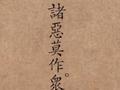 諸惡莫作。眾